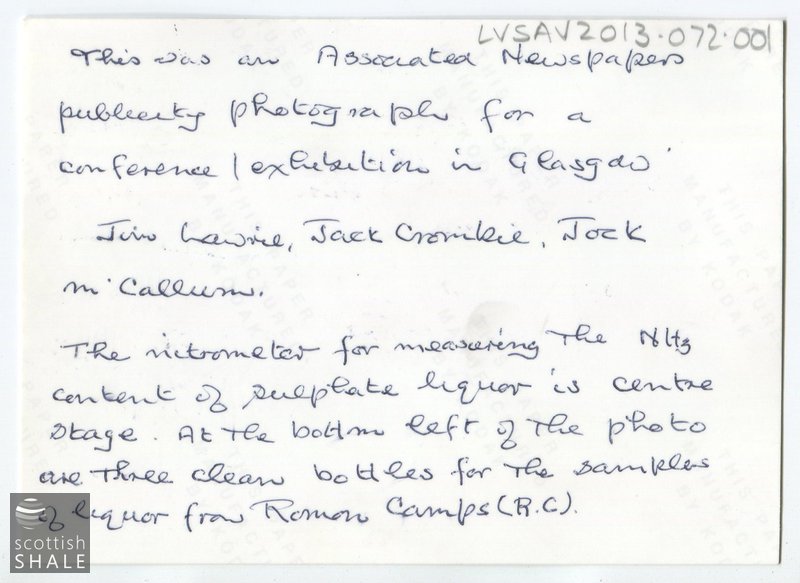 LVSAV2013.072.001
This was an Associated Newspapers
publicity photograph for a
conference / exhibition in Glasgow
Jim Lawrie, Jack Crombie, Jock
McCallum.
The nitrometer for measuring the NH3
content of sulphate liquor is centre
stage. At the bottom left of the photo
are three clean bottles for the samples
of liquor from Roman Camps (R.C).
scottish
SHALE
THIS PAPER
MANUFACTURED
BY KODAK